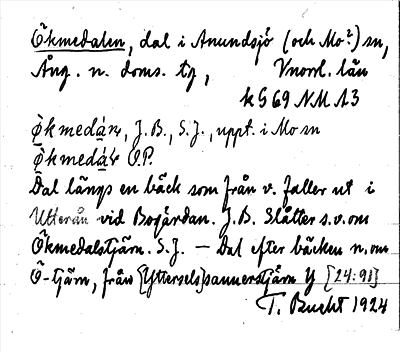 Ökmedalen, dal i Anundsjö (och Mo?) sn,
Ång. n. doms. tg, Vnorl. län
k G 69 NM 13
Ökmedàn, J.B., S.J., uppt. i Mo sn
Ökmedàr O.P.
Dal längs en bäck som från v. faller ut i
Utterån vid Bogärdan. J.B. Slåtter s.v. om
Ökmedalstjärn. S.J. — Dal efter bäcken n. om
Ö-tjärn, från tjärn y [24:91]
T. Bucht 1924